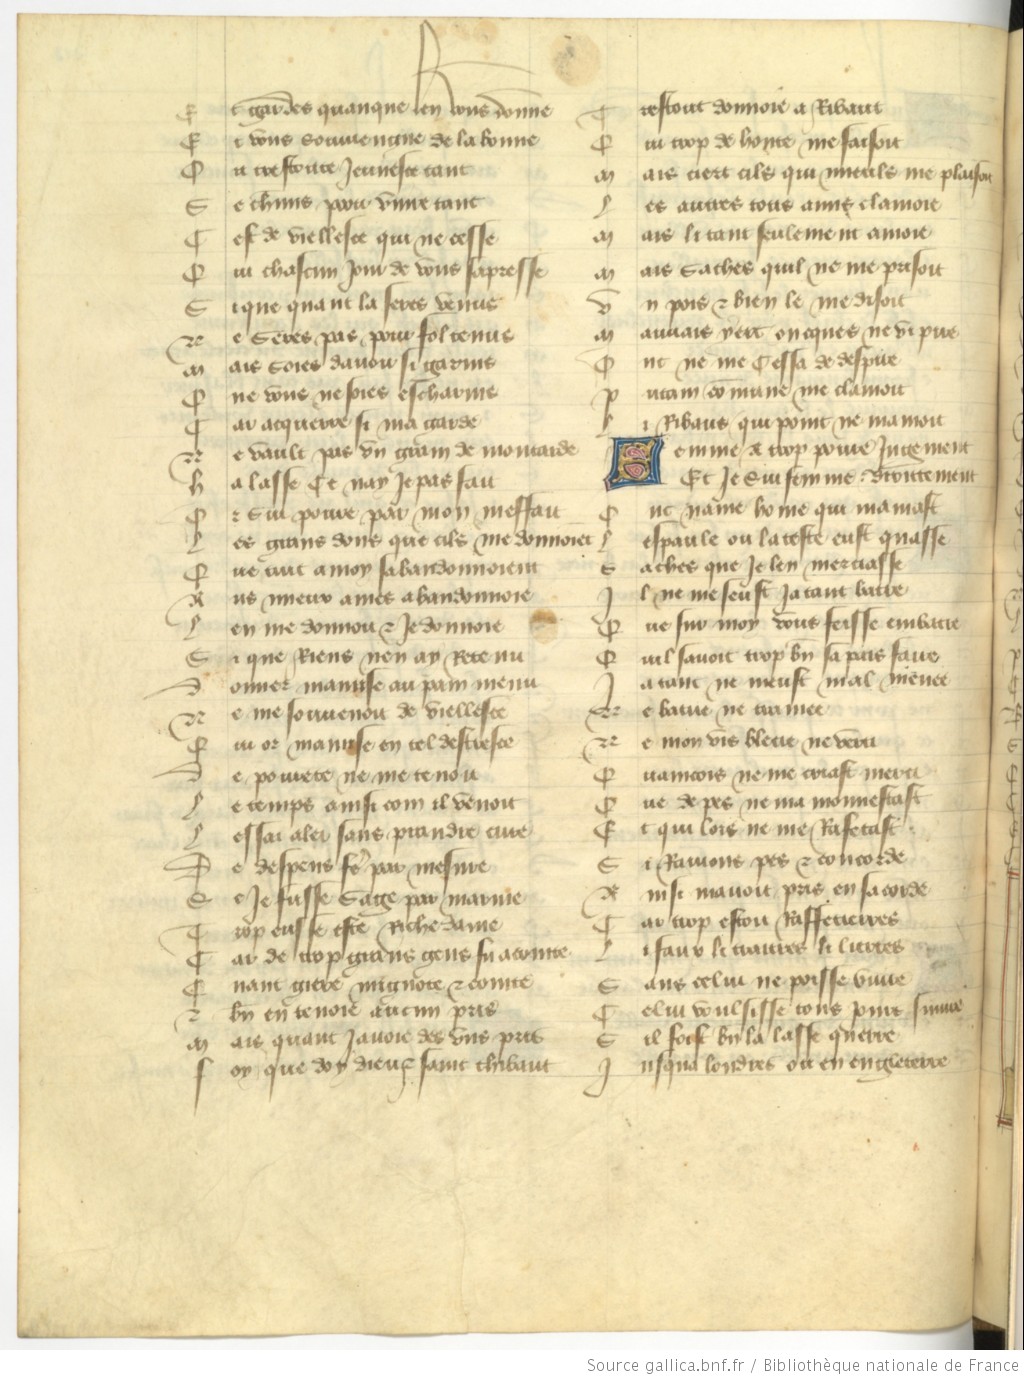 Et gardes quanque len vous donne
Et vous souviengne de la bonne
Ou trestoute Jeunesce tant
Se chius pour vivre tant
Cest de viellesce qui ne cesse
Qui chascun Jour de vous sapresse
Si que quant la seres venus
Ne seres pas pour fol tenus
Mais soies davoir si garnis
Que vous ne soies escharnis
Car acquerre si na garde
Ne vault pas un grain de moustarde
Ha lasse Ce nay Je pas fait
Or sui povre par mon meffait
Les grans dons que cils me donnoient
Que tuit a moy sabandonnoient
Aus mieux ames abandonnoie
Len me donnoit et Je donnoie
Si que Riens nen ay Retenu
Donner ma mise au pain menu
Ne me souvenoit de viellesce
Qui or ma mise en tel destresce
De povrete ne me tenoit
Le temps ainsi com il venoit
Lessai aler sans prandre cure
De despens fere par mesure
Se Je fusse Sage par marme
Trop eusse este Riche dame
Car de trop grans gens fu acointe
Quant giere mignote et cointe
Et bien en tenoie aucun pris
Mais quant Javoie des uns pris
Foy que doy dieu et saint thibaut
Trestout donnoie a Ribaut
Qui trop de honte me faisoit
Mais ciert cils qui miculs me plaisoit
Les autres tous amis clamoie
Mais li tant seulement amoie
Mais Saches quil ne me prisoit
Un pois et bien le me disoit
Mauvais yert oncques ne vi pire
Onc ne me Cessa de despire
Putain commune me clamoit
Li Ribaus qui point ne mamoit
Femme a trop povre Jugement
Et Je Sui femme droittement
Onc name home qui mamast
Lespaule ou la teste eust quasse
Saches que Je len merciasse
Il ne me seust Ja tant batre
Que sur moy vous feisse embatre
Quil savoit trop bien sa pais faire
Ja tant ne meust mal menee
Ne batue ne trainee
Ne mon vis blecie ne verti
Quaincois ne me criast merci
Que de pes ne ma monnestast
Et qui lors ne me Rafetast
Si Ravions pes et concorde
Ainsi mavoit pris en sa corde
Car trop estoit Raffetierres
Li faux li traitres li lierres
Sans celui ne poisse vivre
Celui voulsisse tous Jours suivre
Sil foist bien la lasse querre
Jusqua londres ou en engleterre
Source gallica.bnf.fr / Bibliothèque nationale de France